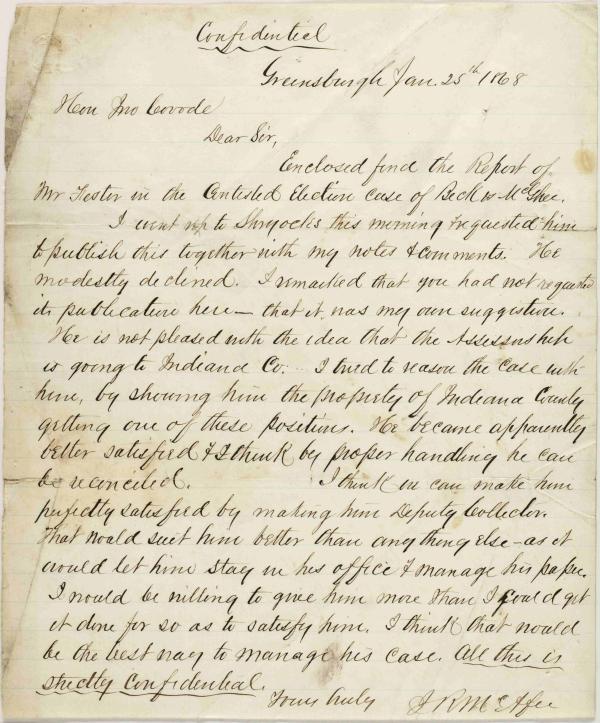 Confidential
Greensburgh Jan. 25th 1868
Hon Jno Covode
Dear Sir,
Enclosed find the Report of
Mr Fester in the Contested Election case of Beck vs McGhee.
I went up to Shryocks this morning & requested him
to publish this together with my notes & comments. He
modestly declined. I remarked that you had not requested
its publication here — that it was my own suggestion.
He is not pleased with the idea that the Assessorship
is going to Indiana Co. I tried to reason the case with
him, by showing him the propriety of Indiana County
getting one of these positions. He became apparently
better satisfied & I think by proper handling he can
be reconciled. I think we can make him
perfectly satisfied by making him Deputy Collector.
That would suit him better than anything else – as it
would let him stay in his office & manage his paper.
I would be willing to give him more than I could get
it done for so as to satisfy him. I think that would
be the best way to manage his case. All this is
strictly confidential.
Yours truly J R McAfee